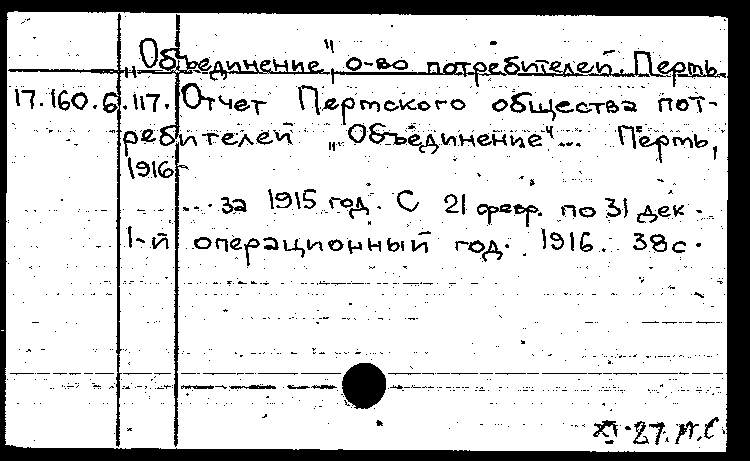 „Объединение", о-во потребителей. Пермь
17.160.6.117. Отчет Пермского общества пот-
ребителей „Объединение"... Пермь,
1916-
... за 1915 год. С 21 февр. по 31 дек.
1-й операционный год. 1916. 38с.
XI-27.